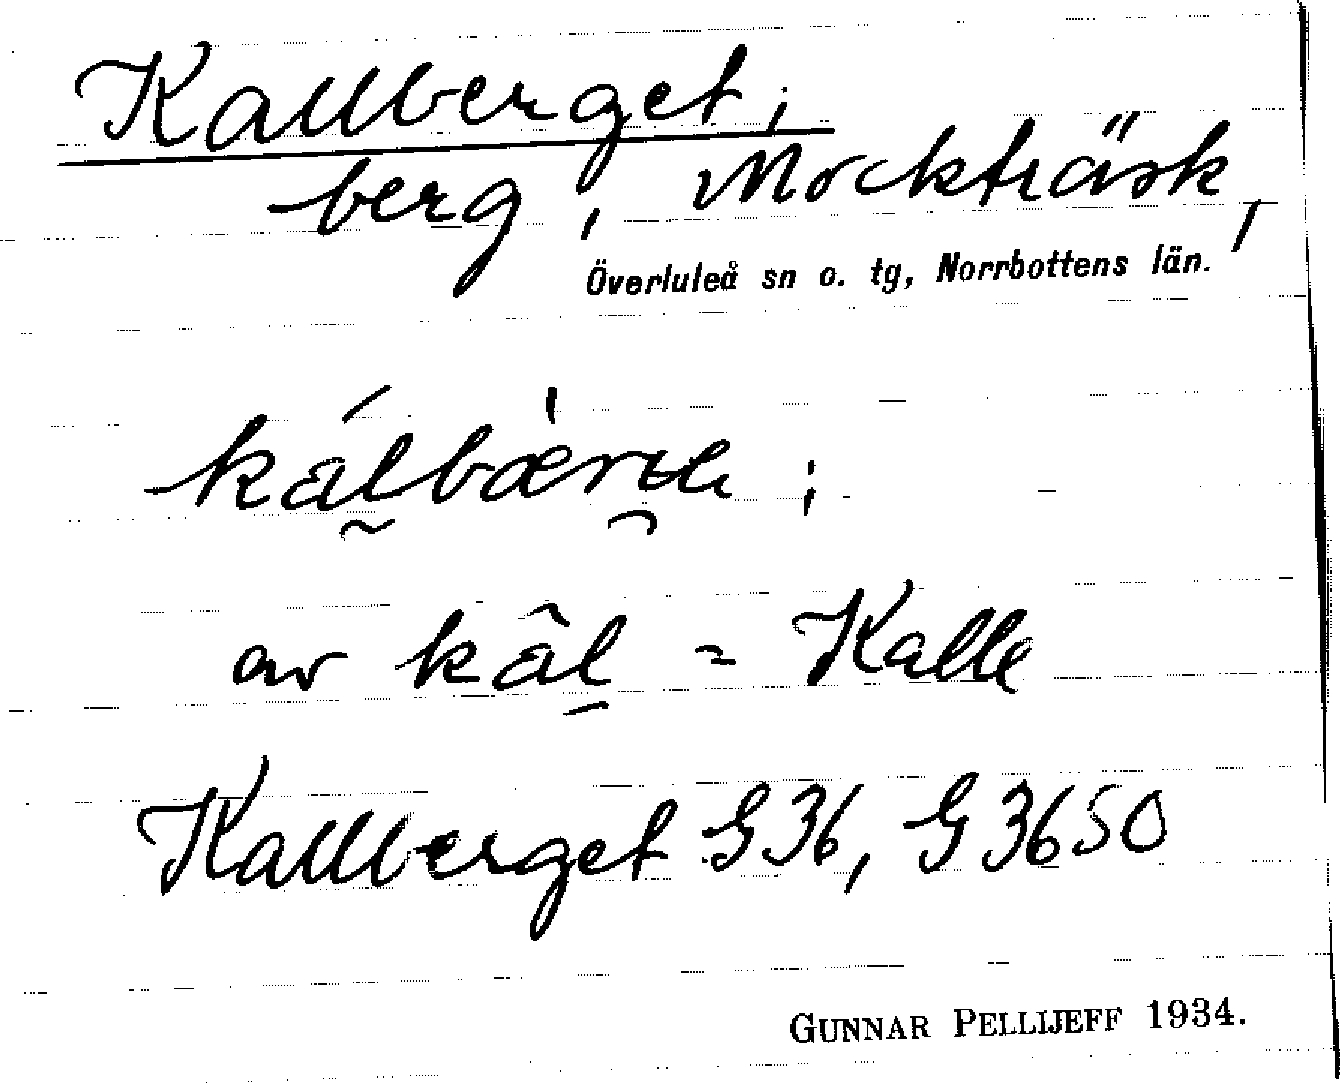 Kallberget;
berg, Mockträsk,
Överluleå sn o. tg, Norrbottens län.
av kâl = Kalle
Kallberget G36, G3650
GUNNAR PELLIJEFF 1934.